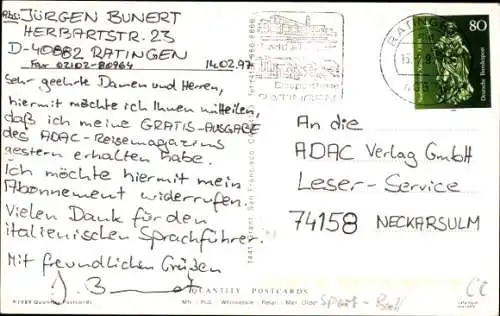 Abs: JÜRGEN BUNERT
HERBARTSTR. 23
D-40882 RATINGEN
Fax 02102-80964 14.02.97
Sehr geehrte Damen und Herren,
hiermit möchte ich Ihnen mitteilen,
daß ich meine GRATIS-AUSGABE
des ADAC-Reisemagazins
gestern erhalten habe.
Ich möchte hiermit mein
Abonnement widerrufen.
Vielen Dank für den
italienischen Sprachführer.
Mit freundlichen Grüßen
J. B
RATINGEN
80
Deutsche Bundespost
An die
ADAC Verlag GmbH
Leser-Service
74158 NECKARSULM
QUANTITY POSTCARDS
©1989 Quantity Postcards